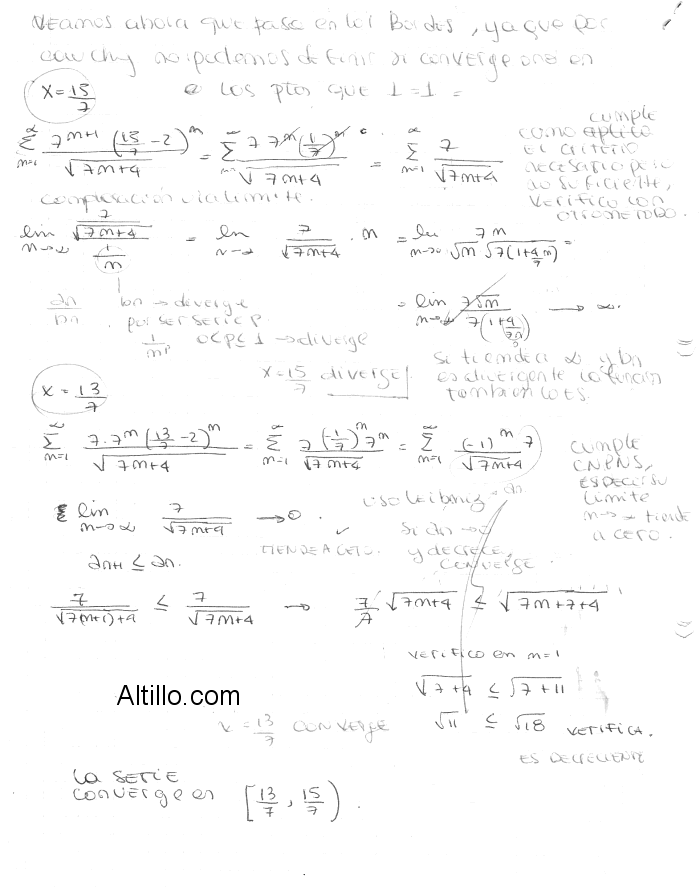 Veamos ahora que pasa en los Bordes, ya que por
cauchy no podemos definir si converge o no en
los ptos que 1=1 =
x = 15/7
∞∑n=1 7^(n+1) (15/7 - 2)^n / √(7n+4) = ∞∑n=1 7 7^n (1/7)^n / √(7n+4) = ∞∑n=1 7/√(7n+4)
cumple
como
el criterio
necesario pero
no suficiente,
verifico con
otro metodo.
comparación via limite.
lim n→∞ (7/√(7n+4)) / (1/n) = lim n→∞ 7/√(7n+4) · n = lim n→∞ 7n / √n √7(1+4/7n) =
an/bn bn → diverge
por ser serie p.
1/n^p 0<p≤1 → diverge
= lim n→∞ 7√n / 7(1+4/7n) → ∞.
x = 15/7 diverge
si tiende a ∞ y bn
es divergente
tambien lo es.
x = 13/7
∞∑n=1 7·7^n (13/7 - 2)^n / √(7n+4) = ∞∑n=1 7 (-1/7)^n 7^n / √(7n+4) = ∞∑n=1 (-1)^n 7 / √(7n+4)
cumple
CNPNS,
es decir su
limite
n→∞ tiende
a cero.
uso Leibniz = an
lim n→∞ 7/√(7n+4) → 0.
tiende a cero. ✓
Si an → 0
y decrece,
converge.
an+1 ≤ an.
7/√(7(n+1)+4) ≤ 7/√(7n+4) → 7/7 √(7n+4) ≤ √(7n+7+4)
verifico en n=1
√(7+4) ≤ √(7+11)
√11 ≤ √18 verifica.
Altillo.com
x = 13/7 converge
es decreciente
La serie
converge en [13/7, 15/7).